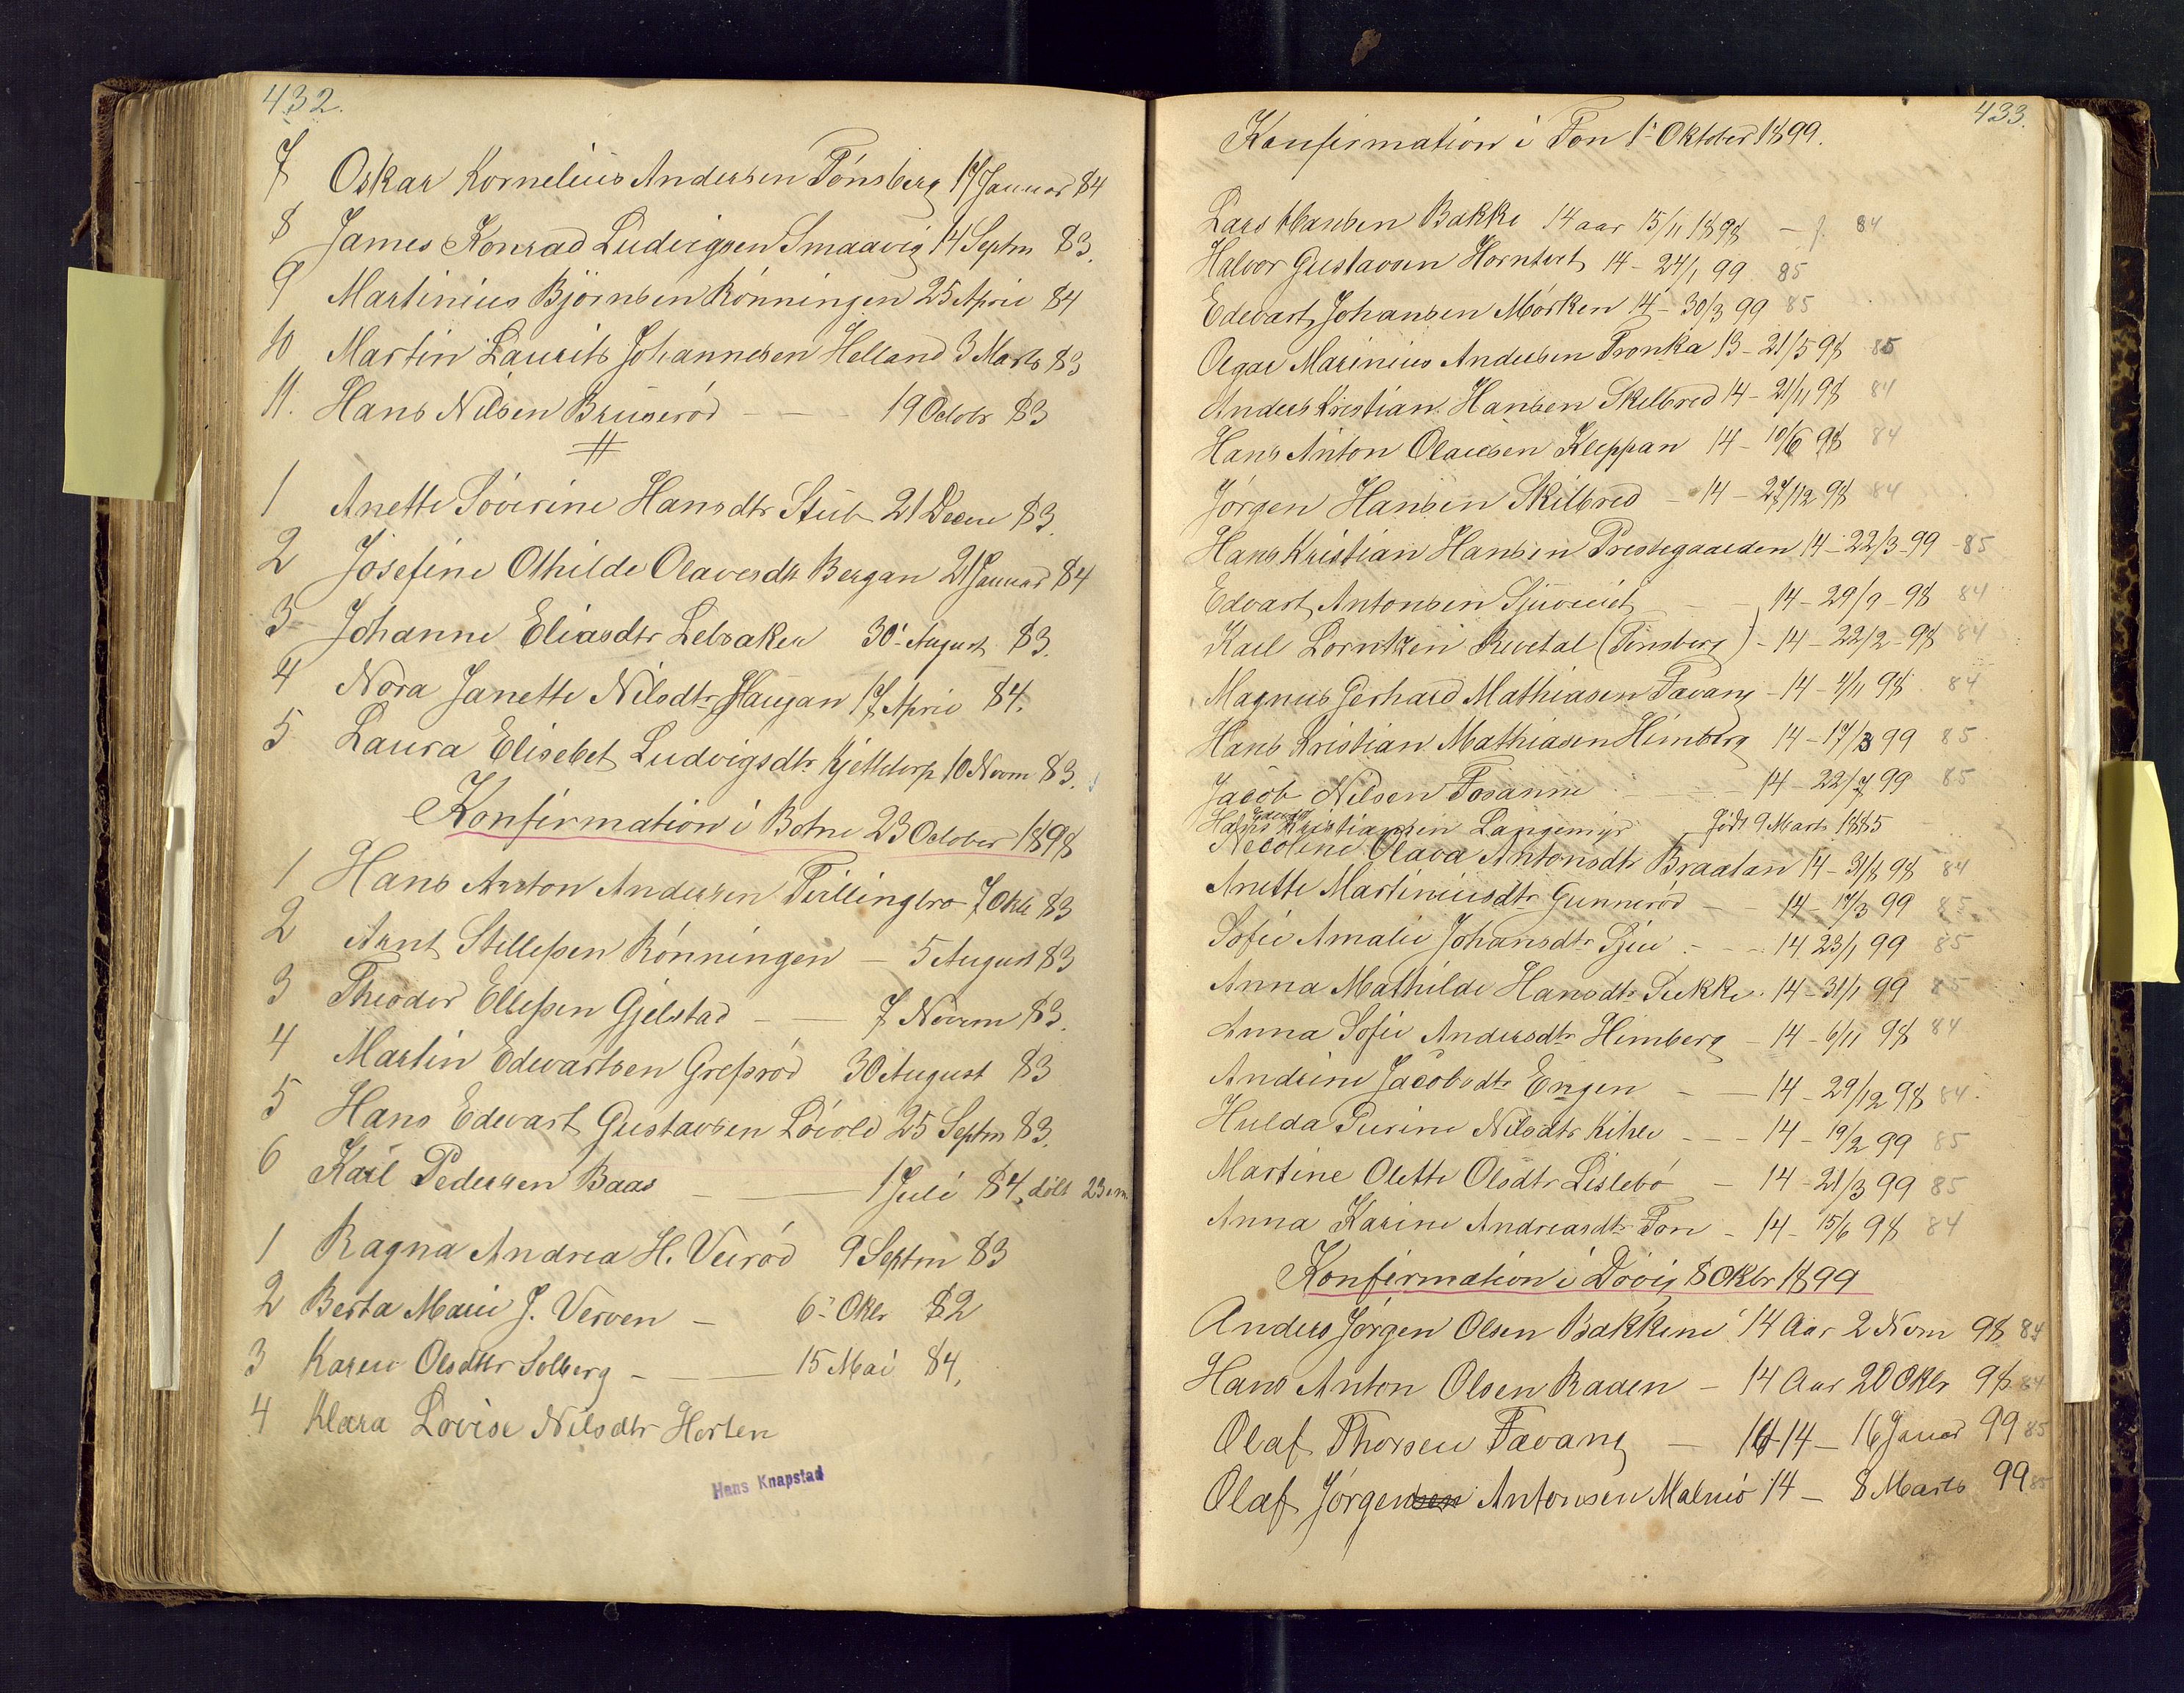 432.
7 Oskar Kornelius Andersen Tónsberg 17 Januar 84
8 James Konrad Ludvigsen Smaavig 14 Septm 83.
9 Martinius Björnsen Rónningen 25 April 84
10 Martin Laurits Johannesen Helland 3 Marts 83
11. Hans Nilsen Bruseród - - - 19 Octobr 83
#
1 Anette Sóverine Hansdtr Stub 21 Decm 83.
2 Josefine Othilde Olavesdtr Bergan 21 Januar 84
3 Johanne Eliasdtr Lebsaker 30' August 83.
4 Nora Janette Nilsdtr Haugan 17 April 84.
5 Laura Elisebet Ludvigsdtr Kjelldorp 10 Novm 83.
Konfirmation i Botne 23 October 1898
1 Hans Anton Andersen 7 Oktb 83
2 Arnt Stillefsen Rónningen - 5 August 83
3 Theodor Ellefsen Gjelstad - - 7 Novem 83.
4 Martin Edvartsen Grefsród 30 August 83
5 Hans Edevart Gustavsen Lóvold 25 Septm 83.
6 Karl Pedersen Baas - - 1 Juli 84, dóbt 23
1 Ragna Andrea H. Veiród 9 Septm 83
2 Berta Marie J. Verven - 6- Oktb 82
3 Karen Olsdttr Solberg - - 15 Mai 84.
4 Klara Lovise Nilsdtr Horten
Hans Knapstad
433.
Konfirmation i Fon 1' Oktober 1899.
Lars Hansen Bakke 14 aar 15/11 1898 - 84
Halvor Gustavsen Horntvet 14 - 24/1 99 85
Edevart Johansen Mórken 14 - 30/3 99 85
Marinius Andersen Tronka 13 - 21/5 98 85
Anders Kristian Hansen Skilbred 14 - 21/11 98 84
Hans Anton Olausen Kleppan 14 - 10/6 98 84
Jórgen Hansen Skilbred - 14 - 27/12 98 84
Hans Kristian Hansen Prestegaarden 14 - 22/3 - 99 - 85
Edvart Antonsen - - 14 - 29/9 - 98 84
Karl Lorntzen Revetal (Tónsberg) - 14 - 22/2 - 98 84
Magnus Gerhard Mathiasen Favang - 14 - 4/11 98 84
Hans Kristian Mathiasen Himberg 14 - 17/3 99 85
Jacob Nilsen Fosanne - - 14 - 22/7 99 85
Hans Kristiansen Langemyr Födt 9 Marts 1885
Necoline Olava Antonsdtr Braatan 14 - 31/8 98 84
Anette Martiniusdtr Gunneród - - 14 - 17/3 99 85
Sofie Amalie Johansdtr Sjue - - - 14 23/1 99 85
Anna Mathilde Hansdtr Sukke 14 - 31/1 99 85
Anna Sofie Andersdtr Himberg - 14 - 6/11 98 84
Andrine Jacobsdtr Engen - - 14 - 29/12 98 84
Hulda Nilsdtr Kihle - - - 14 - 19/2 99 85
Martine Olette Olsdtr Lislebó - 14 - 21/3 99 85
Anna Karine Andreasdtr Fon - 14 - 15/6 98 84
Konfirmation i Vivig 8 Oktbr 1899
Anders Jórgen Olsen Bakkene 14 Aar 2 Novm 98 84
Hans Anton Olsen Raaen - 14 Aar 20 Oktb 98 84
Olaf Thorsen Favang - 14 - 16 Januar 99 85
Olaf Jórgensen Antonsen Malmó 14 - 8 Marts 99 85